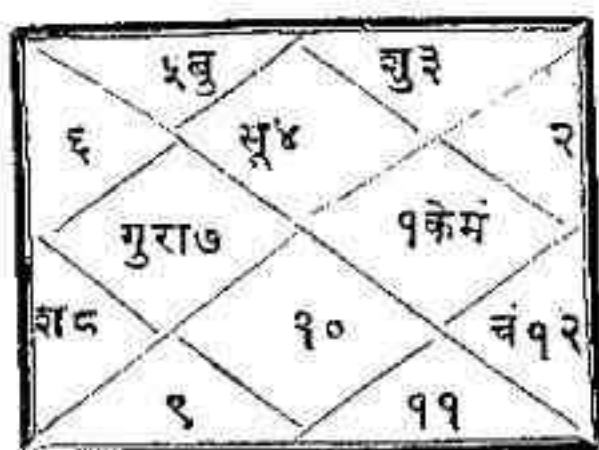 ५बु शु३
६ सू४ २
गुरा७ १केमं
श८ १० चं१२
९ ११